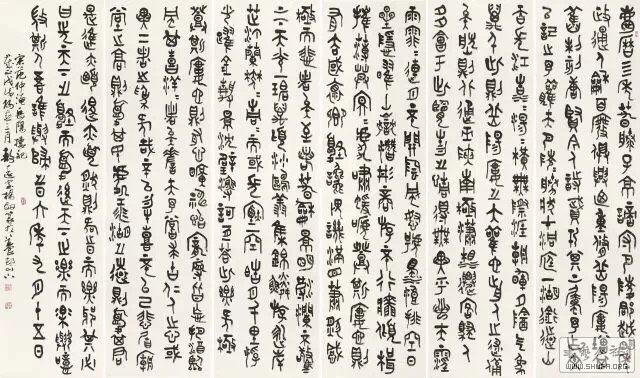 慶曆四年春滕子京謫守巴陵郡越明年
政通人和百廢具興乃重修岳陽樓增其
舊制刻唐賢今人詩賦于其上屬予作文以記
之予觀夫巴陵勝狀在洞庭一湖銜遠山
吞長江浩浩湯湯橫無際涯朝暉夕陰氣
象萬千此則岳陽樓之大觀也前人之述備
矣然則北通巫峽南極瀟湘遷客騷人
多會于此覽物之情得無異乎若夫霪
雨霏霏連月不開陰風怒號濁浪排空日
星隱曜山岳潛形商旅不行檣傾楫
摧薄暮冥冥虎嘯猿啼登斯樓也則
有去國懷鄉憂讒畏譏滿目蕭然感
極而悲者矣至若春和景明波瀾不驚上
下天光一碧萬頃沙鷗翔集錦鱗游泳岸
芷汀蘭郁郁青青而或長煙一空皓月千里浮
光躍金靜影沉璧漁歌互答此樂何極
登斯樓也則有心曠神怡寵辱皆忘把酒臨風
其喜洋洋者矣嗟夫予嘗求古仁人之心或
異二者之為何哉不以物喜不以己悲居廟
堂之高則憂其民處江湖之遠則憂其君
是進亦憂退亦憂然則何時而樂耶其必
曰先天下之憂而憂後天下之樂而樂噫
微斯人吾誰與歸時六年九月十五日
宋范仲淹岳陽樓記
WWW.SHUFA.ORG